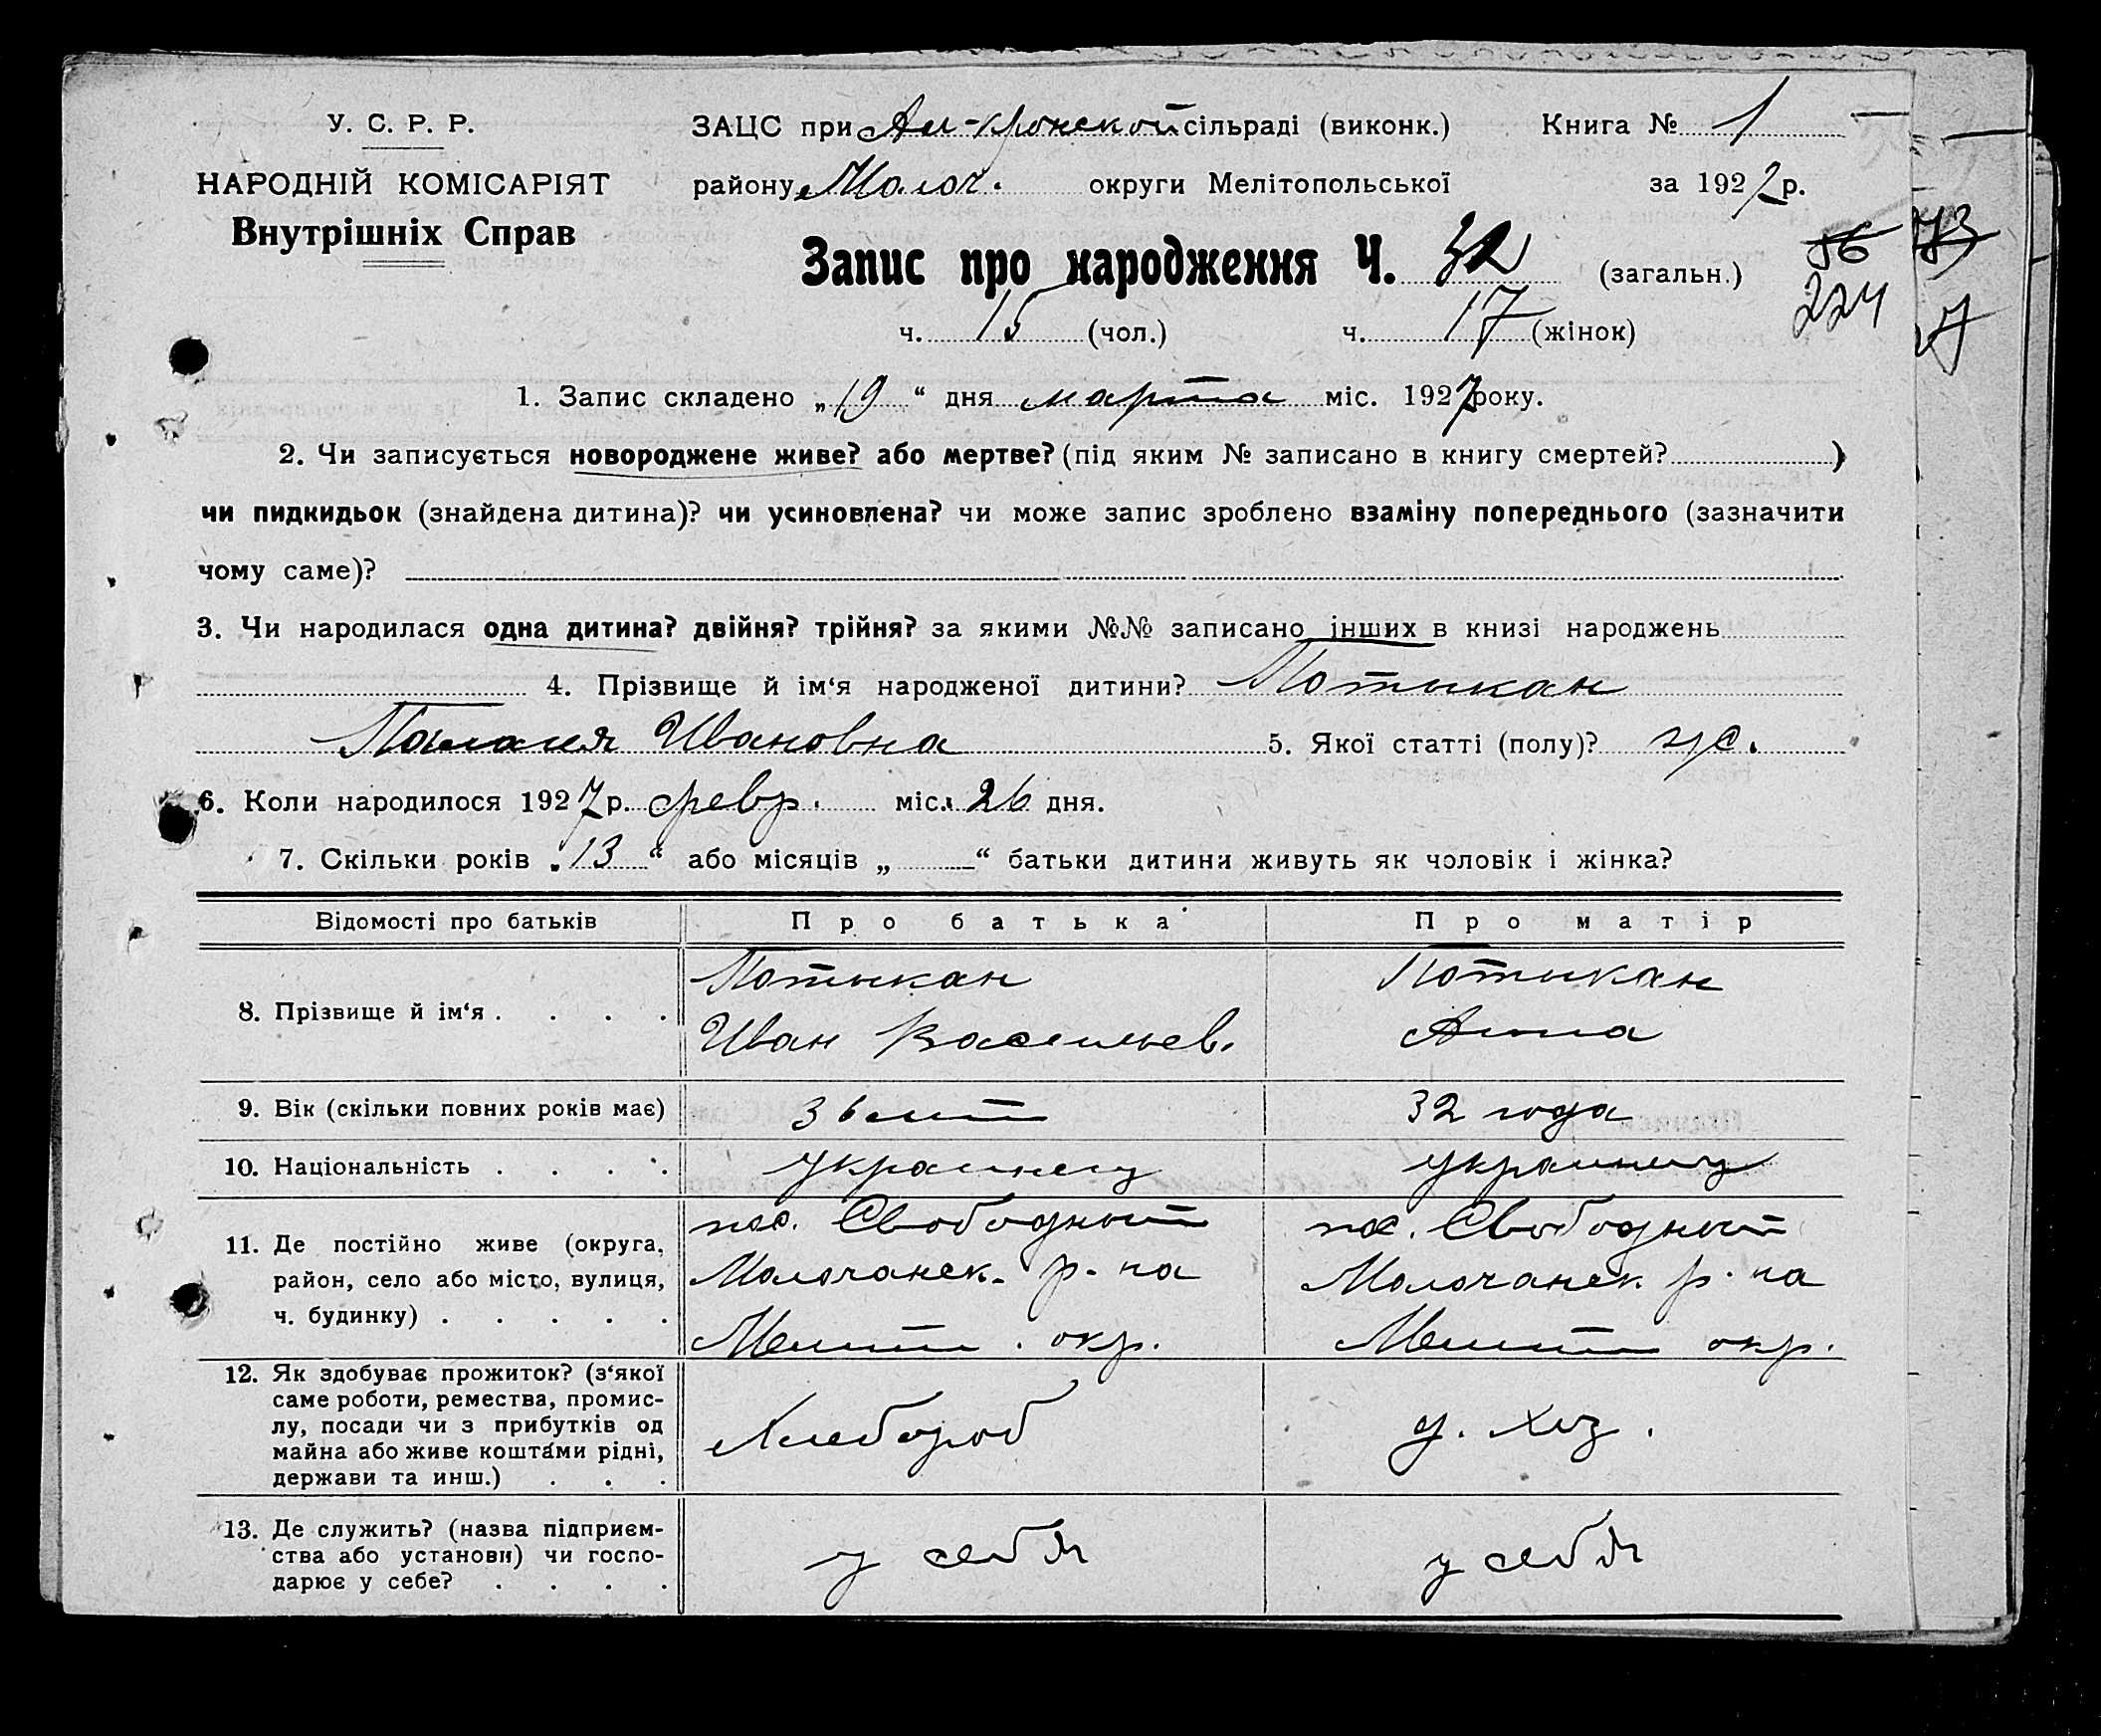 У. С. Р. Р.
НАРОДНІЙ КОМІСАРІЯТ
Внутрішніх Справ
ЗАЦС при Ал-кронской сільраді (виконк.) Книга № 1
району Молоч. округи Мелітопольської за 1927 р.
Запис про народження Ч. 32 (загальн.)
56
224
73
ч. 15 (чол.) ч. 17 (жінок)
1. Запис складено „19“ дня марта міс. 1927 року.
2. Чи записується новороджене живе? або мертве? (під яким № записано в книгу смертей? )
чи пидкидьок (знайдена дитина)? чи усиновлена? чи може запис зроблено взаміну попереднього (зазначити
чому саме)?
3. Чи народилася одна дитина? двійня? трійня? за якими №№ записано інших в книзі народжень
4. Прізвище й ім‘я народженої дитини? Потыкан
Палагея Ивановна 5. Якої статті (полу)? ж.
6. Коли народилося 1927 р. февр. міс. 26 дня.
7. Скільки років „13“ або місяців „ “ батьки дитини живуть як чоловік і жінка?
Відомості про батьків Про батька Про матір
8. Прізвище й ім‘я . . . . Потыкан Потыкан
Иван Васильев. Анна
9. Вік (скільки повних років має) 36 лет 32 года
10. Національність . . . . украинец украинец
11. Де постійно живе (округа, район, село або місто, вулиця, ч. будинку) . . . . .
пос. Свободный
Молочанск. р-на
Мелит. окр.
пос. Свободный
Молочанск р-на
Мелит окр.
12. Як здобуває прожиток? (з‘якої
саме роботи, ремества, промис-
лу, посади чи з прибутків од
майна або живе коштами рідні,
держави та инш.) . . .
Хлебороб д. хоз.
13. Де служить? (назва підприєм-
ства або установи) чи госпо-
дарює у себе? . . . .
у себя у себя